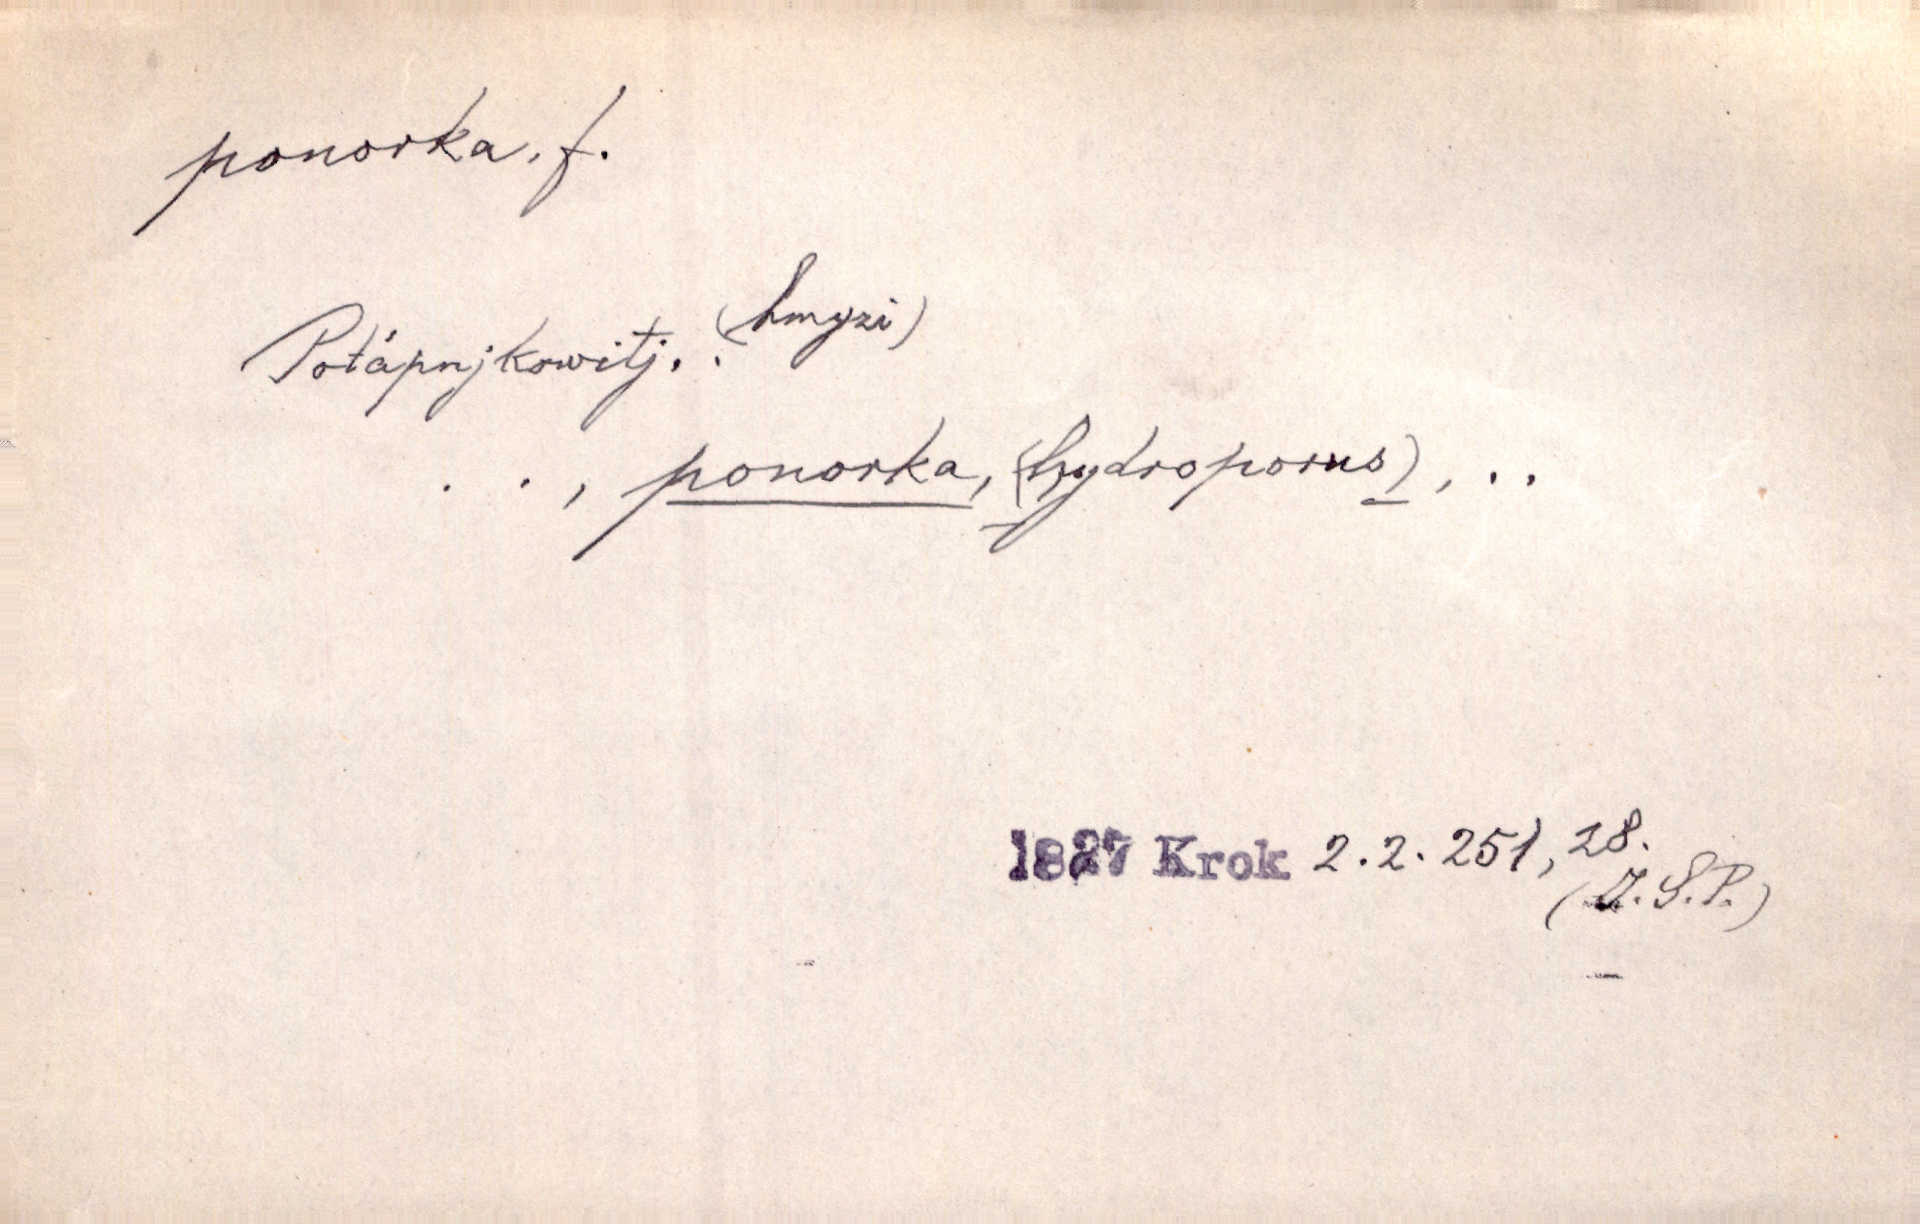 ponorka, f.
Potápnjkowitj. . (hmyzi)
. . , ponorka, (hydroporus), . .
1827 Krok 2.2.251, 28.
(J.S.P.)